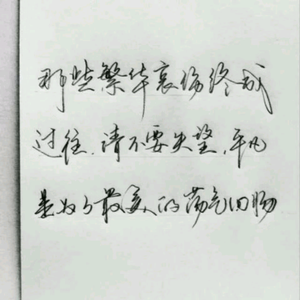 那些繁华哀伤终成
过往,请不要失望,平凡
是为了最美的荡气回肠